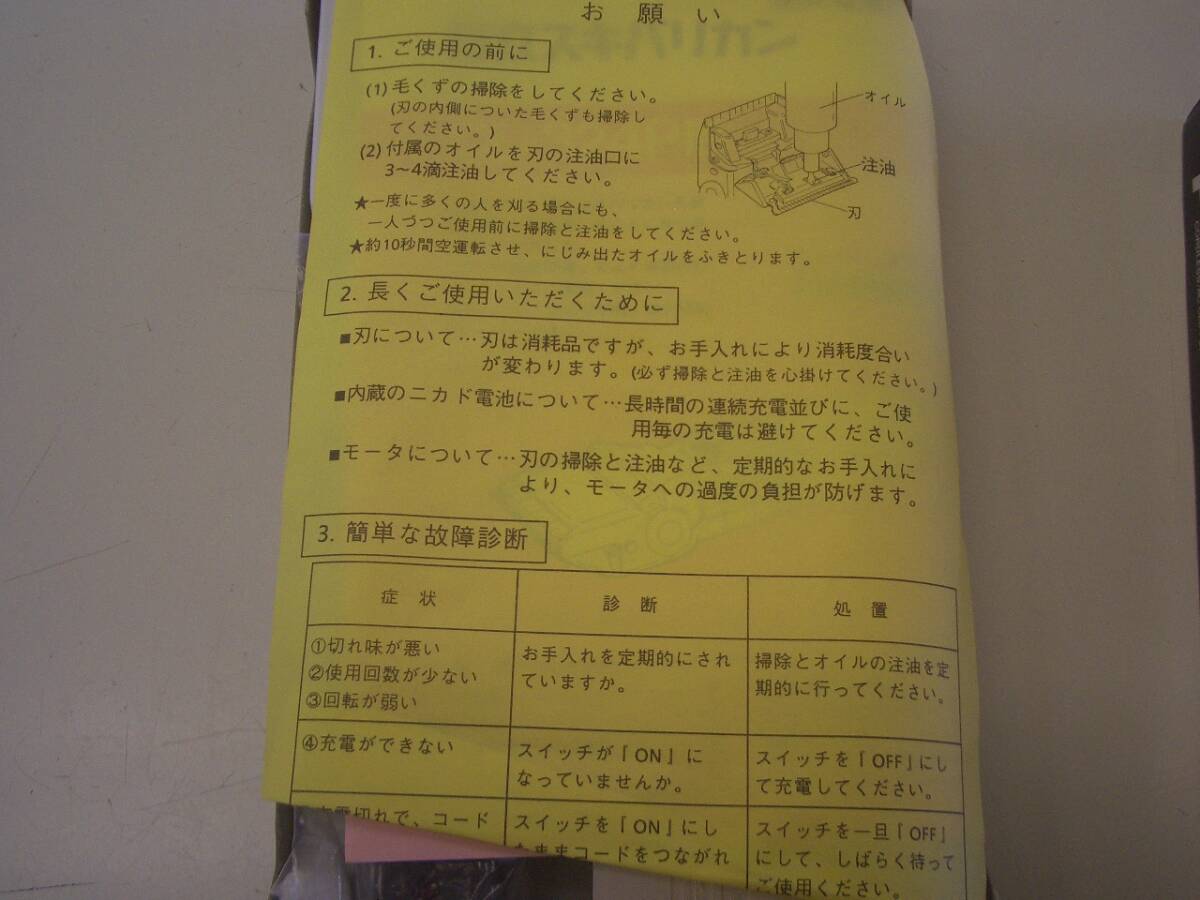 お願い
1. ご使用の前に
(1) 毛くずの掃除をしてください。
(刃の内側についた毛くずも掃除し
てください。)
(2) 付属のオイルを刃の注油口に
3〜4滴注油してください。
オイル
注油
刃
★一度に多くの人を刈る場合にも、
一人づつご使用前に掃除と注油をしてください。
★約10秒間空運転させ、にじみ出たオイルをふきとります。
2. 長くご使用いただくために
■刃について…刃は消耗品ですが、お手入れにより消耗度合い
が変わります。(必ず掃除と注油を心掛けてください。)
■内蔵のニカド電池について…長時間の連続充電並びに、ご使
用毎の充電は避けてください。
■モータについて…刃の掃除と注油など、定期的なお手入れに
より、モータへの過度の負担が防げます。
3. 簡単な故障診断
症状 診断 処置
①切れ味が悪い
②使用回数が少ない
③回転が弱い
お手入れを定期的にされ
ていますか。
掃除とオイルの注油を定
期的に行ってください。
④充電ができない
スイッチが「ON」に
なっていませんか。
スイッチを「OFF」にし
て充電してください。
切れで、コード
スイッチを「ON」にし
たままコードをつながれ
スイッチを一旦「OFF」
にして、しばらく待って
ご使用ください。